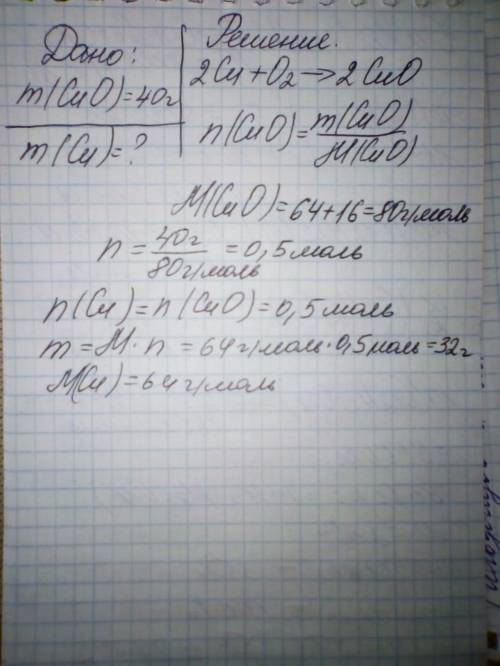 Дано:
m(CuO)=40г
m(Cu)=?
Решение.
2Cu+O₂→2CuO
n(CuO)=m(CuO)/M(CuO)
M(CuO)=64+16=80г/моль
n=40г/80г/моль=0,5моль
n(Cu)=n(CuO)=0,5моль
m=M·n=64г/моль·0,5моль=32г
M(Cu)=64г/моль